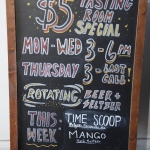 $5 TASTING
ROOM
SPECIAL
MON-WED 3-6PM
THURSDAY 3-LAST CALL!
ROTATING BEER + SELTZER
THIS WEEK
TIME SCOOP
MANGO